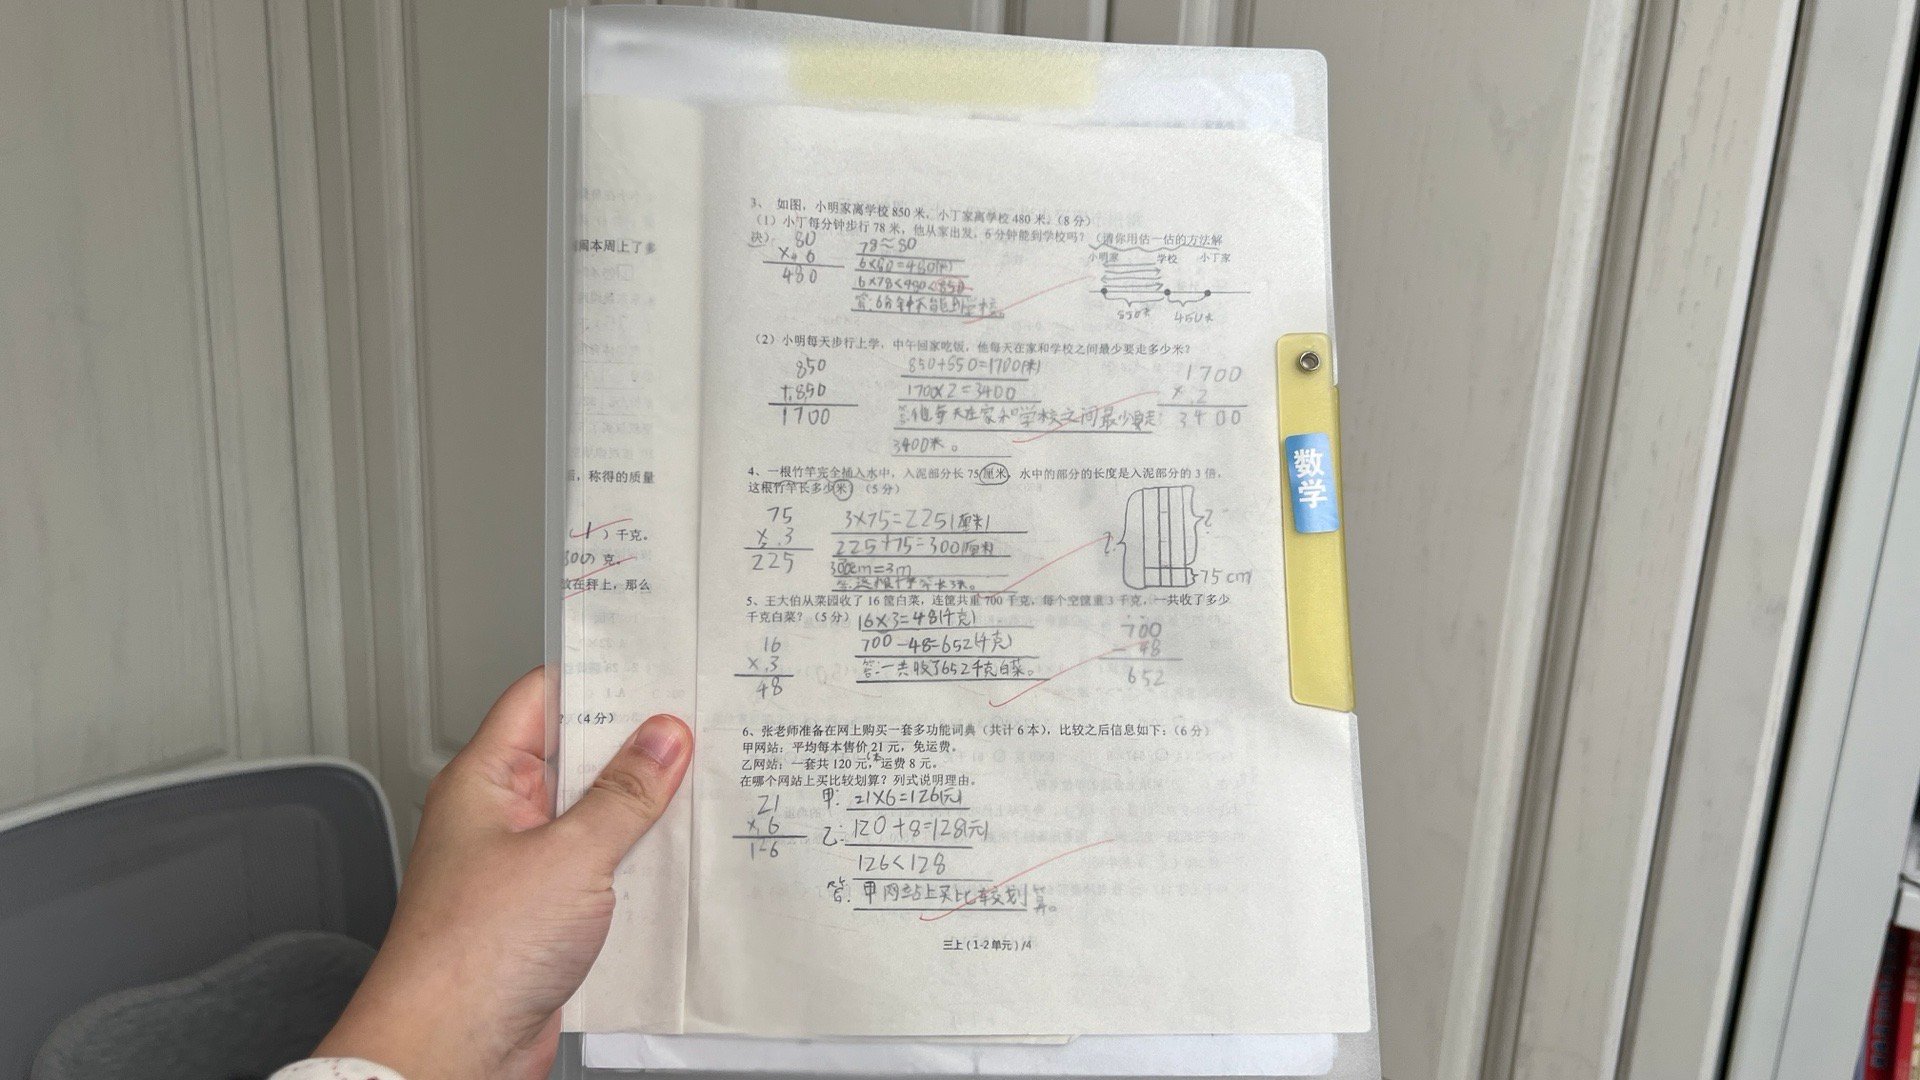 3、 如图，小明家离学校850米，小丁家离学校480米。（8分）
（1）小丁每分钟步行78米，他从家出发，6分钟能到学校吗？（请你用估一估的方法解
决）
80
×6
480
78≈80
6×80=480(米)
6×78<480<850
答：6分钟不能到学校。
小明家 学校 小丁家
850米 480米
（2）小明每天步行上学，中午回家吃饭，他每天在家和学校之间最少要走多少米？
850
+850
1700
850+850=1700(米)
1700×2=3400
答：他每天在家和学校之间最少要走
3400米。
1700
×2
3400
4、一根竹竿完全插入水中，入泥部分长75厘米，水中的部分的长度是入泥部分的3倍，
这根竹竿长多少米？（5分）
75
×3
225
3×75=225(厘米)
225+75=300(厘米)
300cm=3m
?
?
75cm
5、王大伯从菜园收了16筐白菜，连筐共重700千克，每个空筐重3千克，一共收了多少
千克白菜？（5分）
16
×3
48
16×3=48(千克)
700-48=652(千克)
答：一共收了652千克白菜。
700
-48
652
6、张老师准备在网上购买一套多功能词典（共计6本），比较之后信息如下：（6分）
甲网站：平均每本售价21元，免运费。
乙网站：一套共120元，运费8元。
在哪个网站上买比较划算？列式说明理由。
21
×6
126
甲：21×6=126(元)
乙：120+8=128(元)
126<128
答：甲网站上买比较划算。
三上（1-2单元）/4
周本周上了多
，称得的质量
（1）千克。
克。
放在秤上，那么
？（4分）
数学